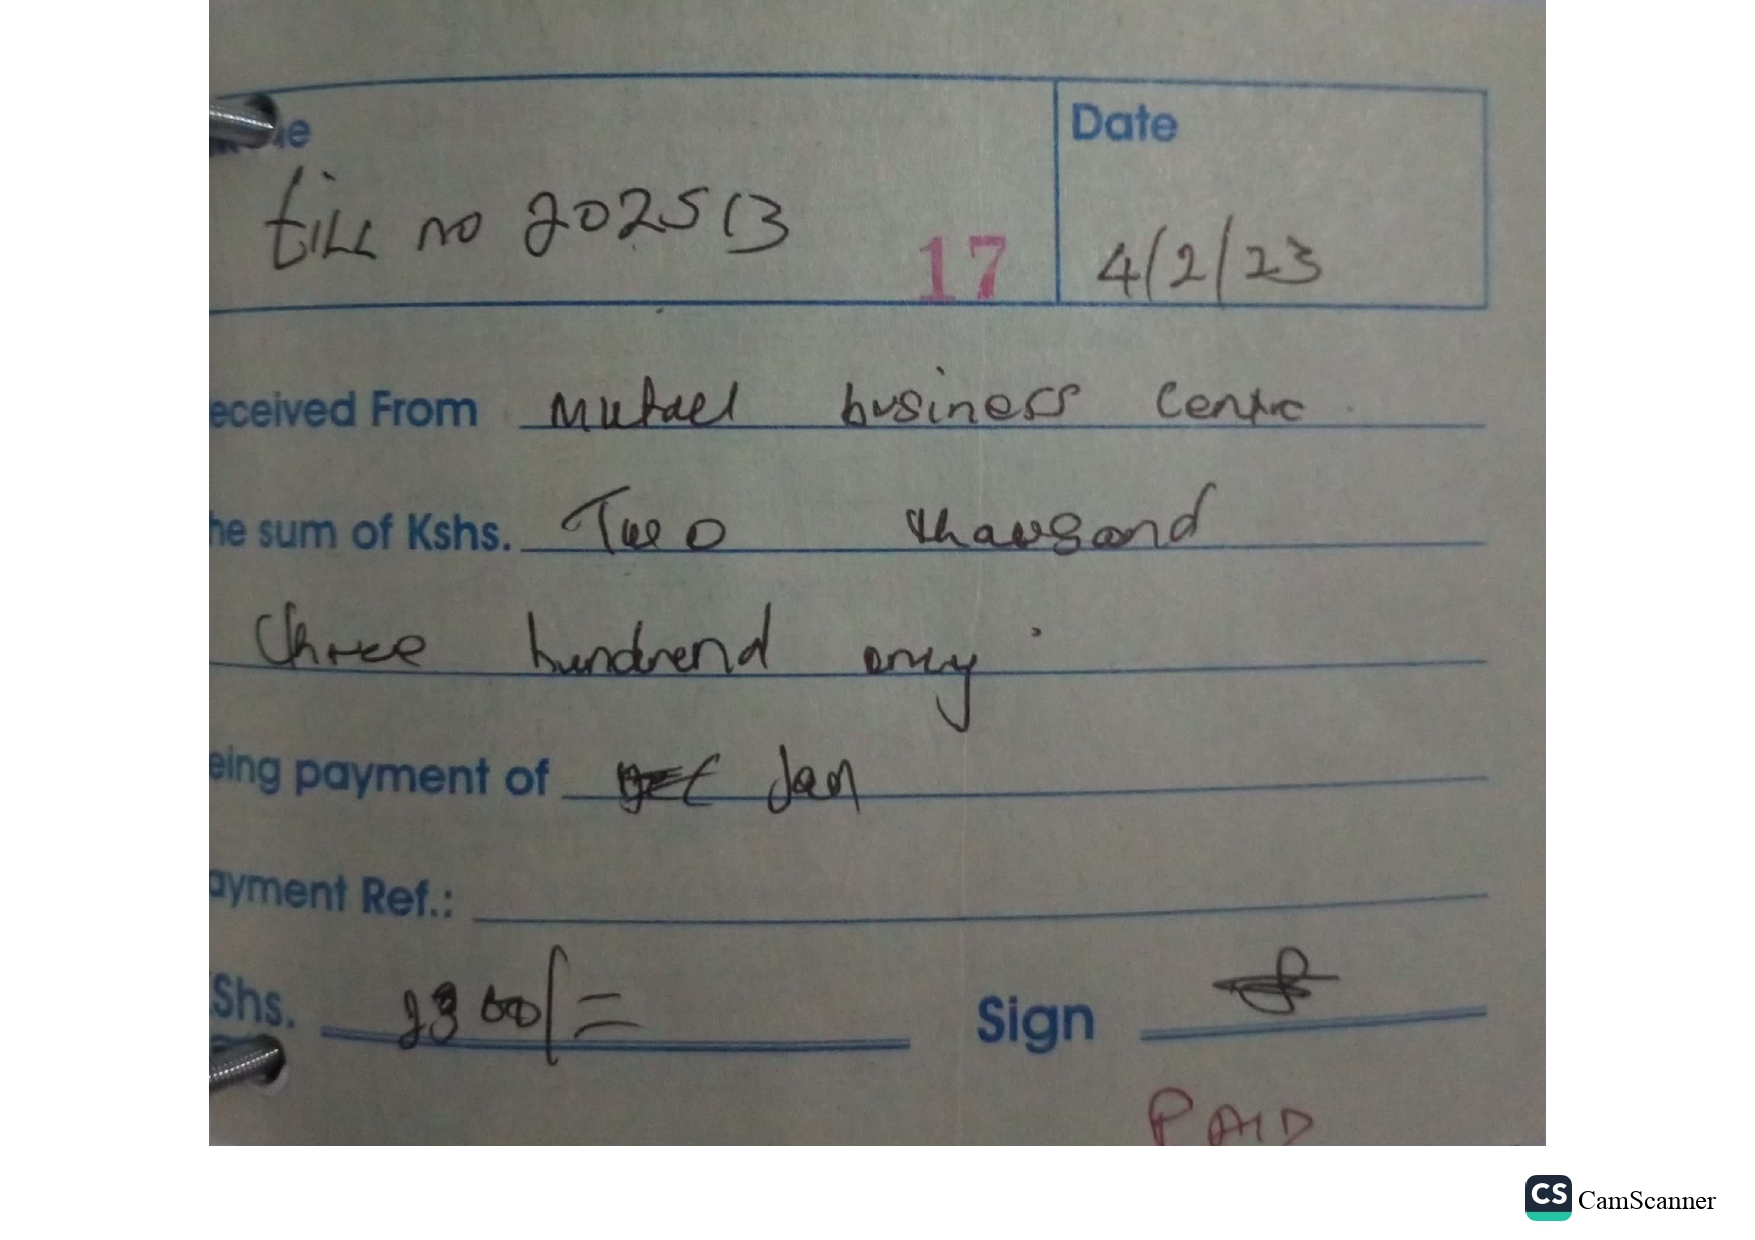 Date
till no 202513
17
4/2/23
eceived From Mutael business Centre
he sum of Kshs. Two thousand
three hundrend only
eing payment of Jan
ayment Ref.:
Shs. 2300/=
Sign
PAID
CS CamScanner